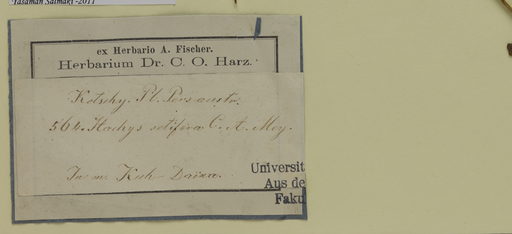 Yasaman Salmaki -2011
ex Herbario A. Fischer.
Herbarium Dr. C. O. Harz.
Kotschy. Pl. Pers. austr.
564. Stachys setifera C. A. Mey.
In m. Kuh-Daëna.
Universit
Aus de
Faku